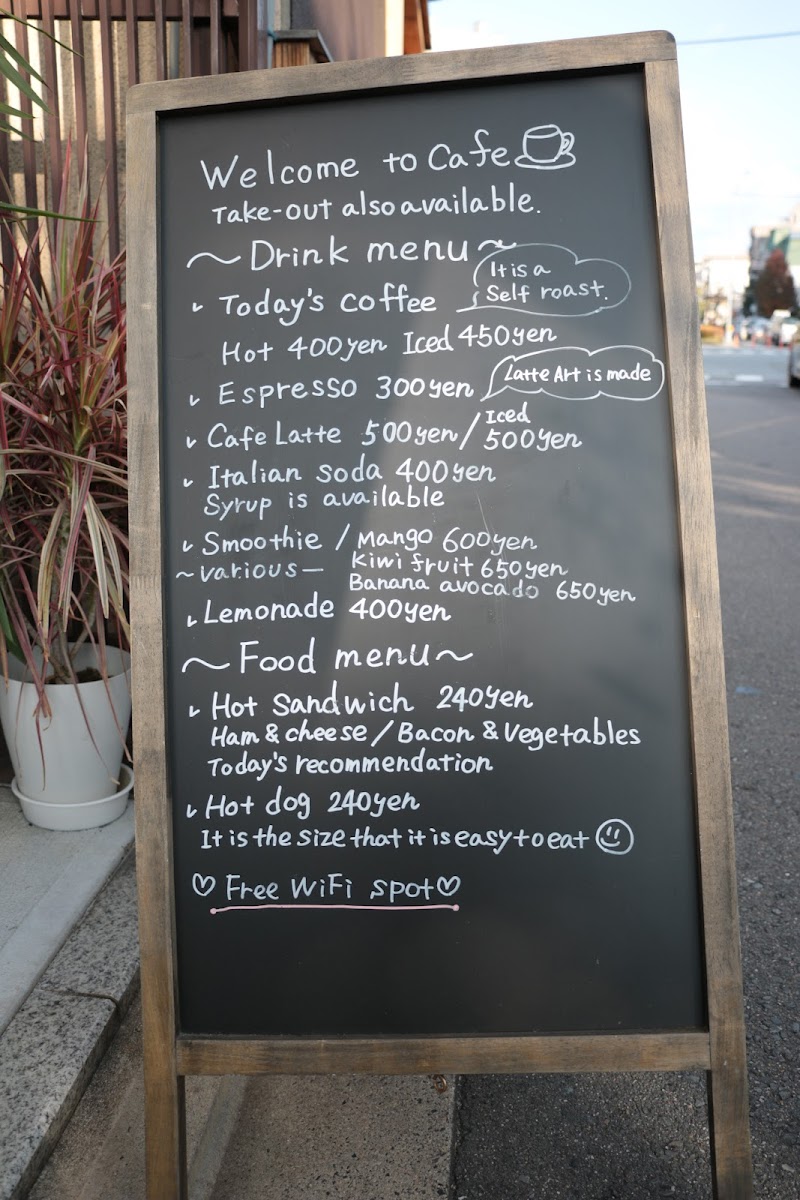 Welcome to Cafe
Take-out also available.
~Drink menu~
It is a
Self roast.
✓ Today's coffee
Hot 400yen Iced 450yen
✓ Espresso 300yen
Latte Art is made
✓ Cafe Latte 500yen/Iced 500yen
✓ Italian soda 400yen
Syrup is available
✓ Smoothie / Mango 600yen
~various— Kiwi fruit 650yen
Banana avocado 650yen
✓ Lemonade 400yen
~Food menu~
✓ Hot Sandwich 240yen
Ham & cheese / Bacon & Vegetables
Today's recommendation
✓ Hot dog 240yen
It is the size that it is easy to eat ☺
♡ Free WiFi spot♡